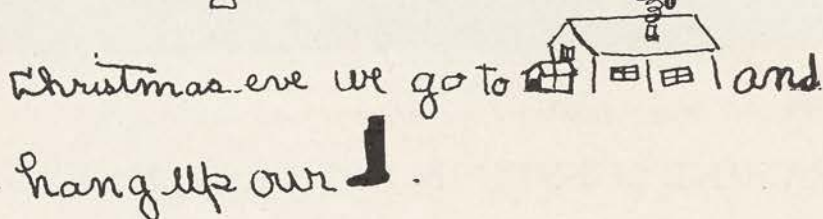 Christmas eve we go to and
hang up our .